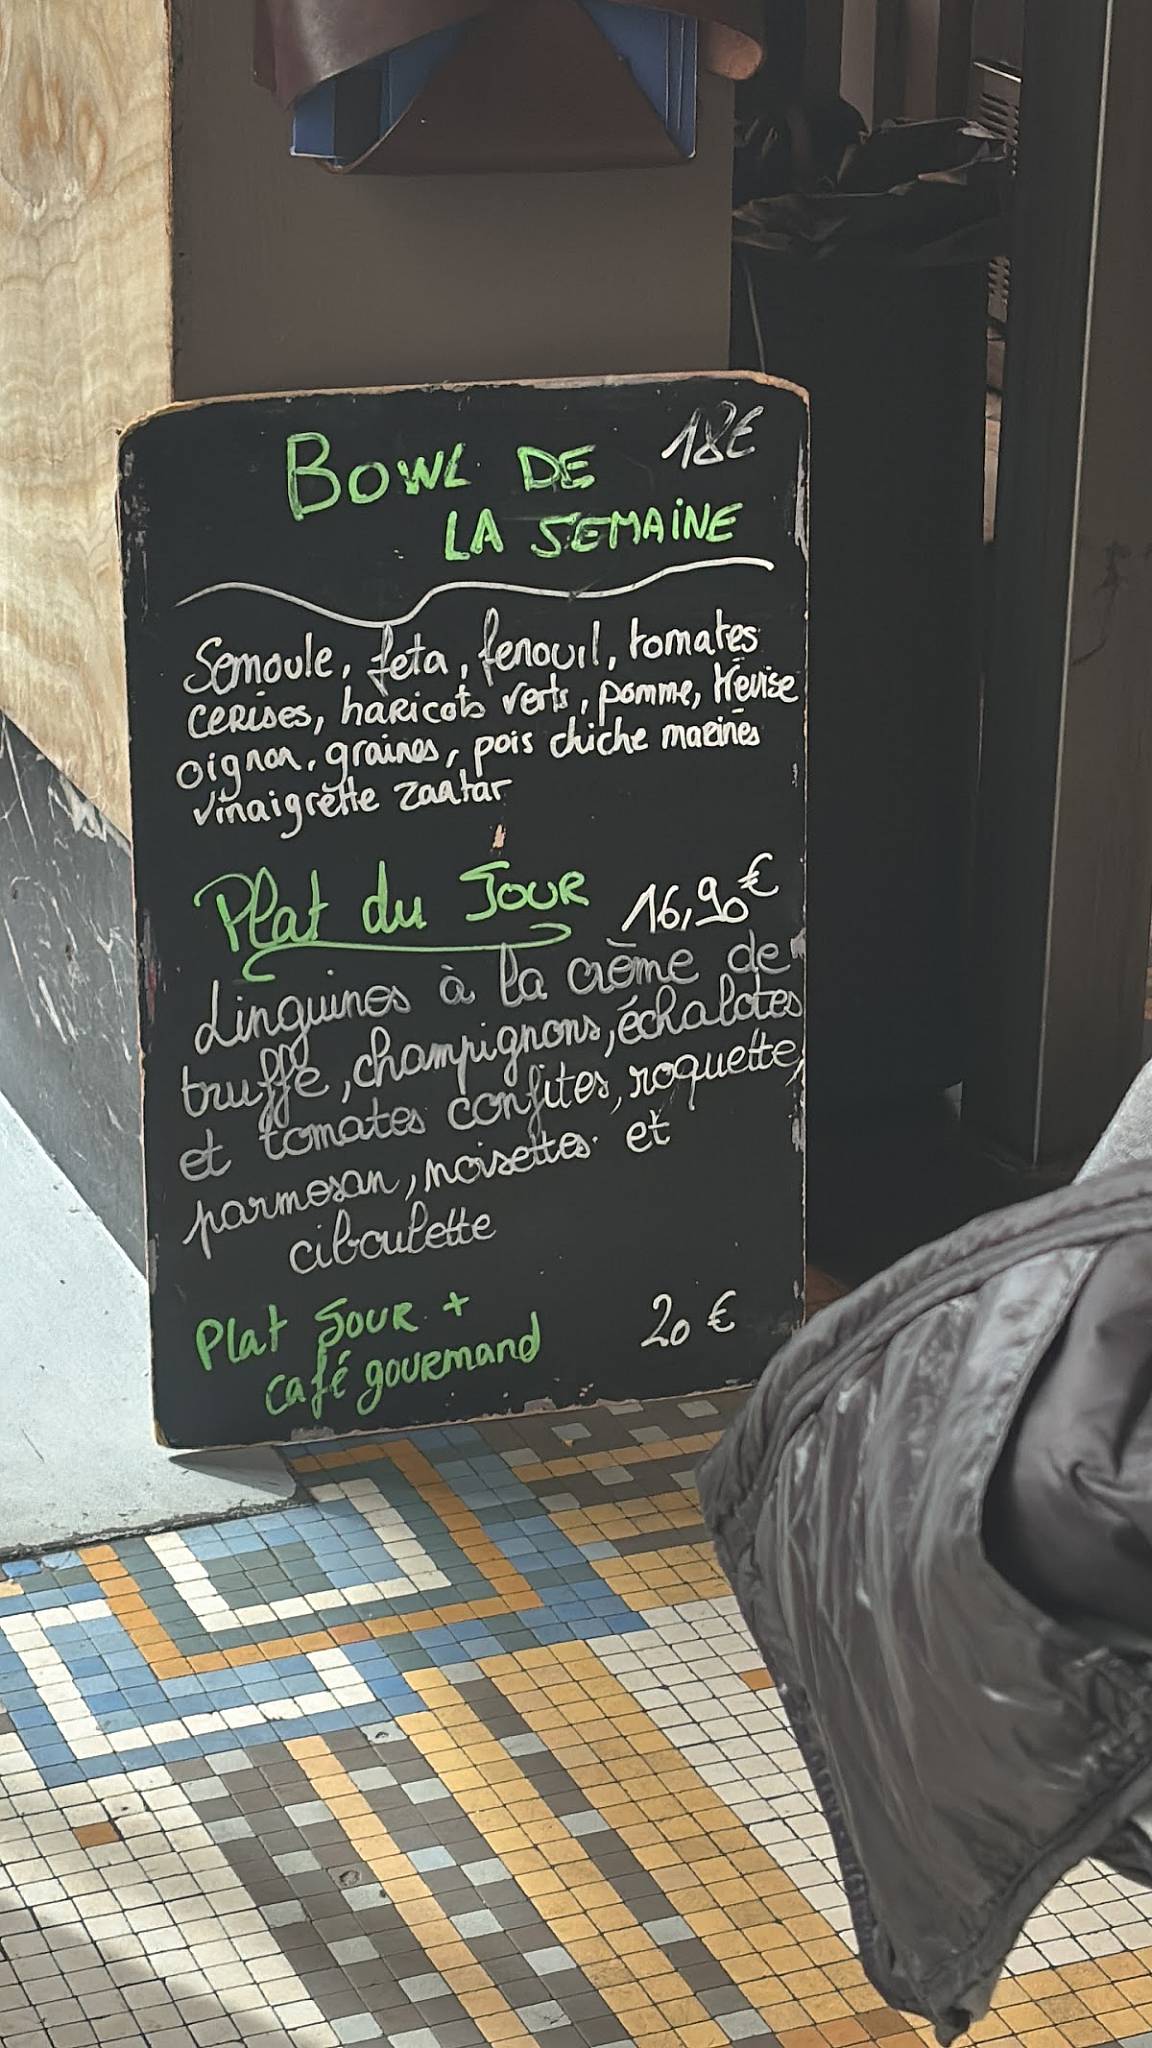 BOWL DE 18€
LA SEMAINE
Semoule, feta, fenouil, tomates
cerises, haricots verts, pomme, trévise
oignon, graines, pois chiche marinés
vinaigrette zaatar
Plat du Jour 16,90€
Linguines à la crème de
truffe, champignons, échalotes
et tomates confites, roquette,
parmesan, noisettes et
ciboulette
Plat Jour + 20 €
café gourmand